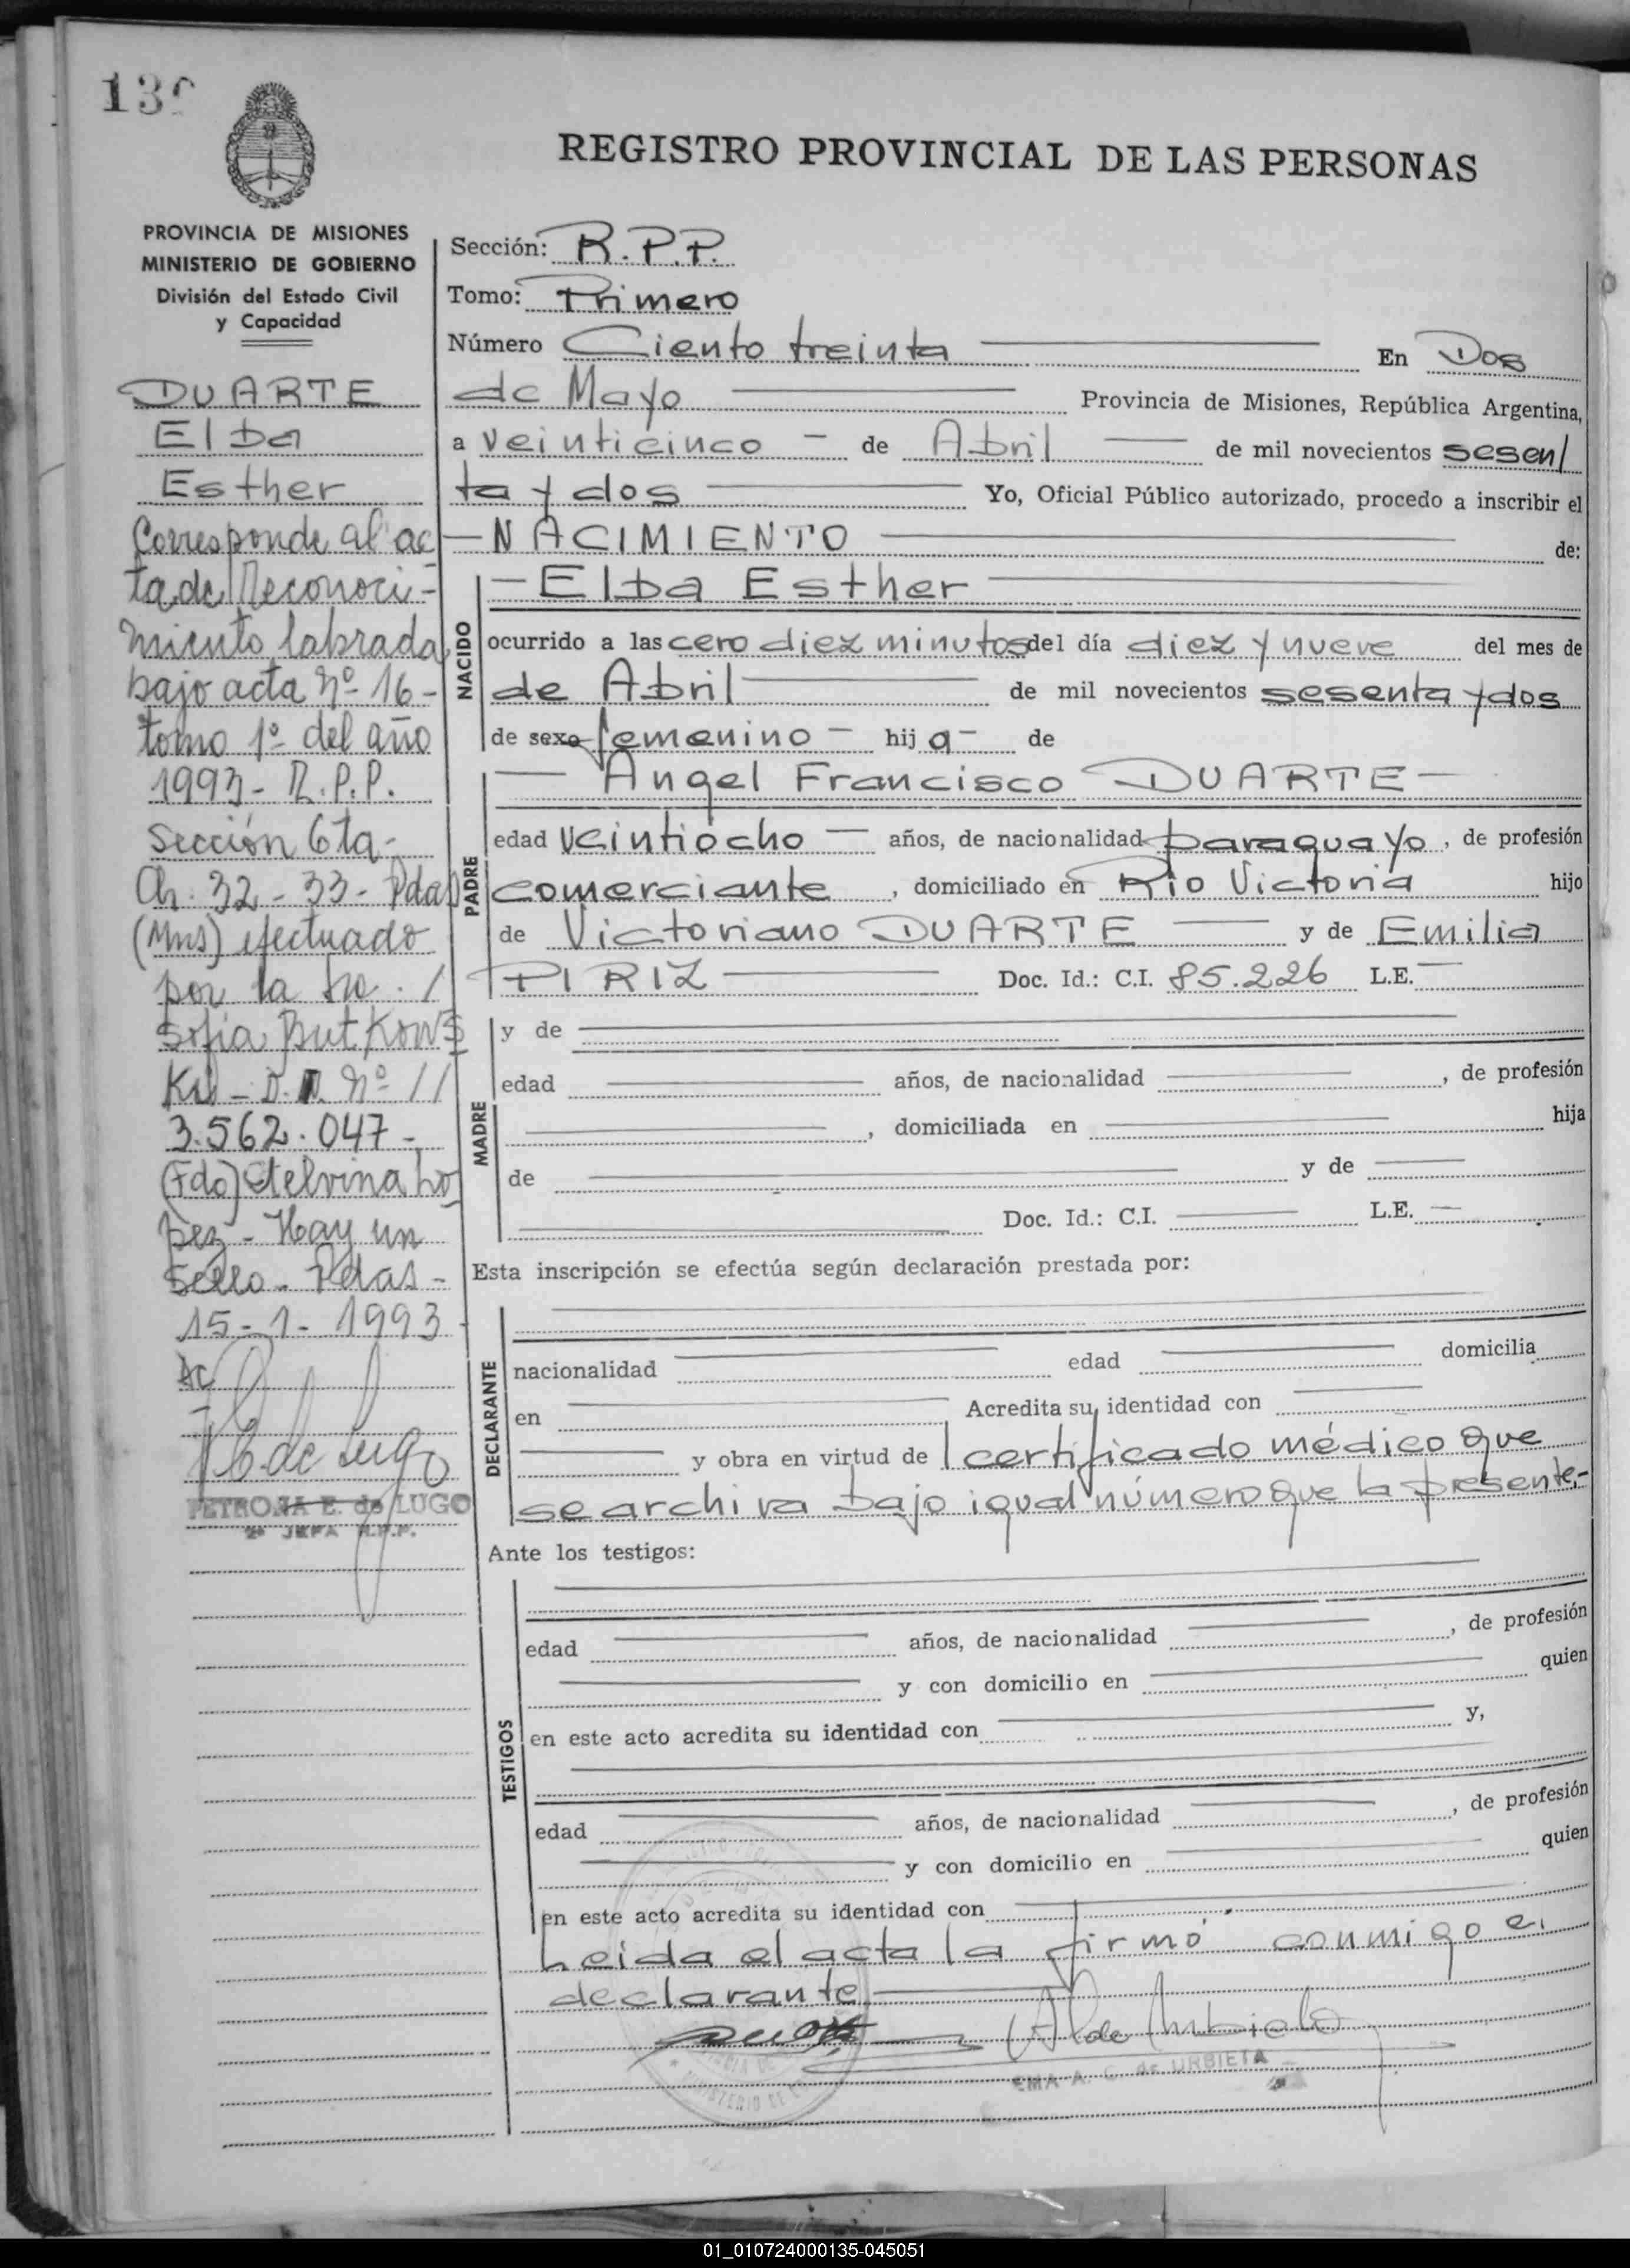 REGISTRO PROVINCIAL DE LAS PERSONAS
PROVINCIA DE MISIONES
MINISTERIO DE GOBIERNO
División del Estado Civil
y Capacidad
DUARTE
Elba
Esther
Corresponde al ac
ta de Reconoci-
miento labrada
bajo acta Nº 16-
tomo 1º del año
1993- R.P.P.
Sección 6ta-
Ch. 32-33- Pdas
(Mns) efectuado
por la
Sofia Butkows
ki - D. Nº //
3.562.047-
(Fdo) Etelvina Lo
pez - Hay un
Sello - Pdas -
15-1-1993
PETRONA E. de LUGO
2ª JEFA R.P.P.
Sección: R.P.P.
Tomo: Primero
Número Ciento treinta En Dos
de Mayo Provincia de Misiones, República Argentina,
a veinticinco - de Abril de mil novecientos sesen/
ta y dos Yo, Oficial Público autorizado, procedo a inscribir el
- NACIMIENTO de:
NACIDO
- Elba Esther
ocurrido a las cero diez minutos del día diez y nueve del mes de
de Abril de mil novecientos sesenta y dos
de sexo femenino - hija - de
PADRE
- Angel Francisco DUARTE -
edad veintiocho - años, de nacionalidad paraguayo, de profesión
comerciante, domiciliado en Rio Victoria hijo
de Victoriano DUARTE y de Emilia
PIRIZ Doc. Id.: C.I. 85.226 L.E. -
MADRE
y de
edad años, de nacionalidad , de profesión
, domiciliada en hija
de y de
Doc. Id.: C.I. L.E. -
Esta inscripción se efectúa según declaración prestada por:
DECLARANTE
nacionalidad edad domicilia
en Acredita su identidad con
y obra en virtud de certificado médico que
se archiva bajo igual número que la presente.-
Ante los testigos:
TESTIGOS
edad años, de nacionalidad , de profesión
y con domicilio en quien
en este acto acredita su identidad con y,
edad años, de nacionalidad , de profesión
y con domicilio en quien
en este acto acredita su identidad con
Leida el acta la firmó conmigo el
declarante
EMA A. C. de URBIETA
01_010724000135-045051